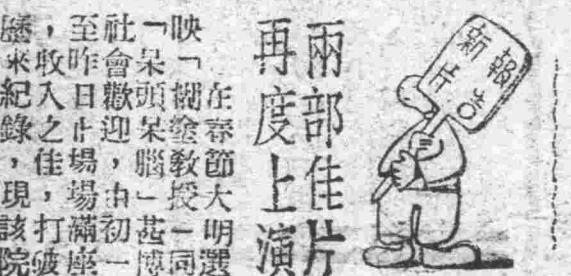 報告
新片
兩部佳片
再度上演
在春節大明選
映「糊塗教授」同
「呆頭呆腦」甚博
社會歡迎，由初一
至昨日止場場滿座
，收入之佳，打破
歷來紀錄，現該院